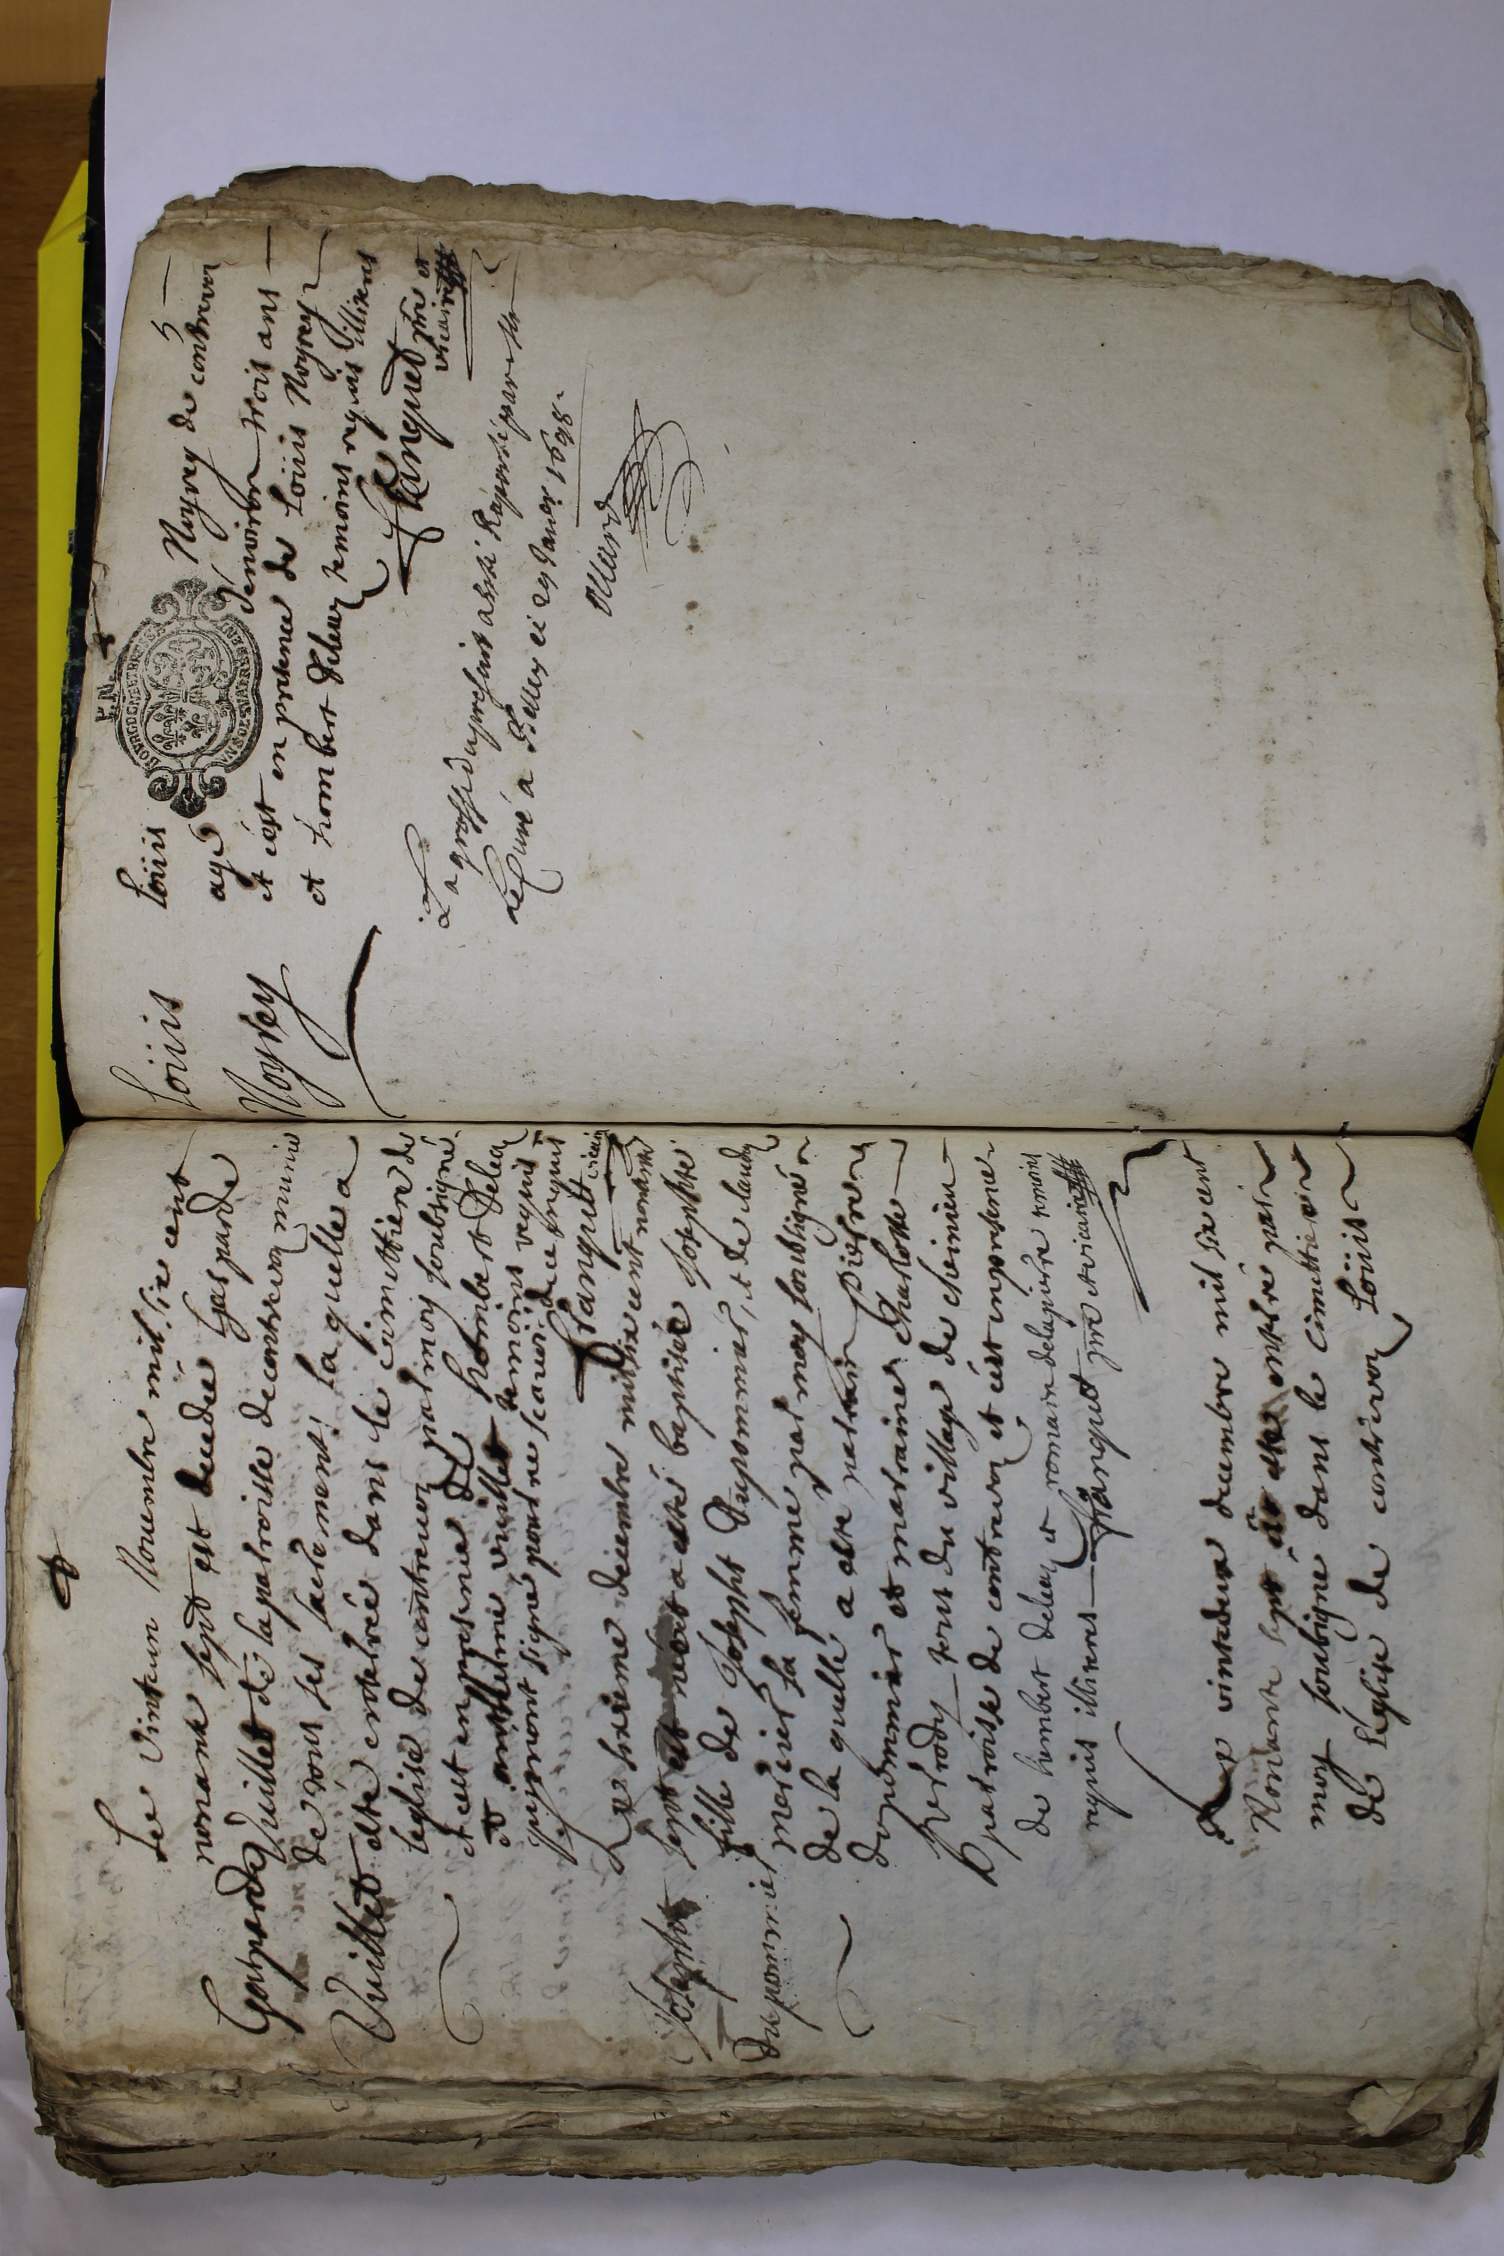 4
Le vinteun Novembre mil six cent
nonante sept est decedée Gasparde
Vuillet de la parroisse de contrevoz munie
de tous ses sacrement! la quelle a
esté enterrée dans le cimittiere de
leglise de contrevoz par moy soubsigné
et c'est en presence de humbert deleaz
et anthelme vuillet temoins requis
qui nont signé pour ne scavoir de ce enquis
Franquet vicair
Gasparde
Vuillet
Le sixieme decembre mil six cent nonante
sept est née et a esté baptisée Josephte
fille de Joseph Dupommier, et de claudine
mercier sa femme par moy soubsigné
de la quelle a esté parrain pierre
dupommier et marraine charlotte
Berrody tous du village de cheinieu
parroisse de contrevoz et c'est en presence
de humbert deleaz et romain delapierre temoins
requis illiteres Franquet pre et vicaire
Josephte
Dupommier
Le vintedux decembre mil six cent
Nonante sept a esté enterré par
moy soubsigné dans le cimittiere
de l'eglise de contrevoz Loüis
5
Loüis Noyrey de contrevoz
BOURGOGNE ET BRESSE
agé denviron trois ans
et c'est en presence de Loüis Noyrey
et humbert deleaz temoins requis illiteres
Franquet pre et
vicaire
Loüis
Noyrey
La grosse du present a esté Raporté par
le Curé a Belley ce 29 Janer 1698